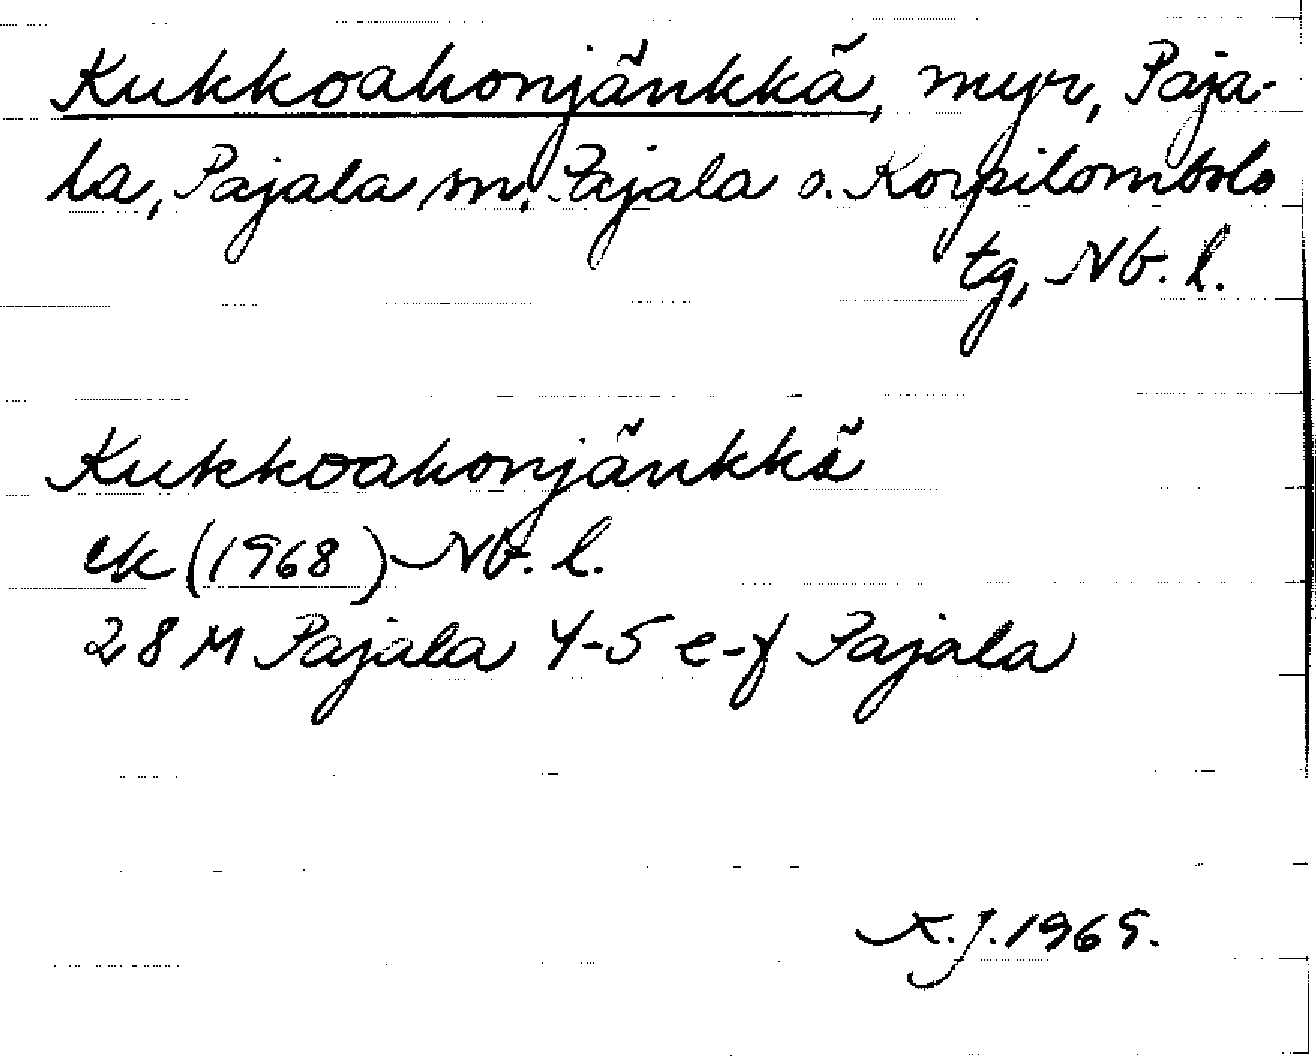 Kukkoahonjänkkä, myr, Paja-
la, Pajala sn. Pajala o. Korpilombolo
tg, Nb. l.
Kukkoahonjänkkä
ek (1968) Nb. l.
28 M Pajala 4-5 e-f Pajala
K.J. 1969.